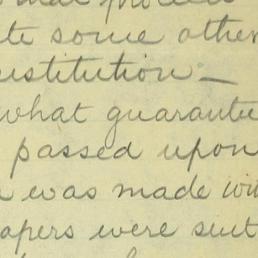 te some other
institution —
what guarante
passed upon
was made wi
apers were suit